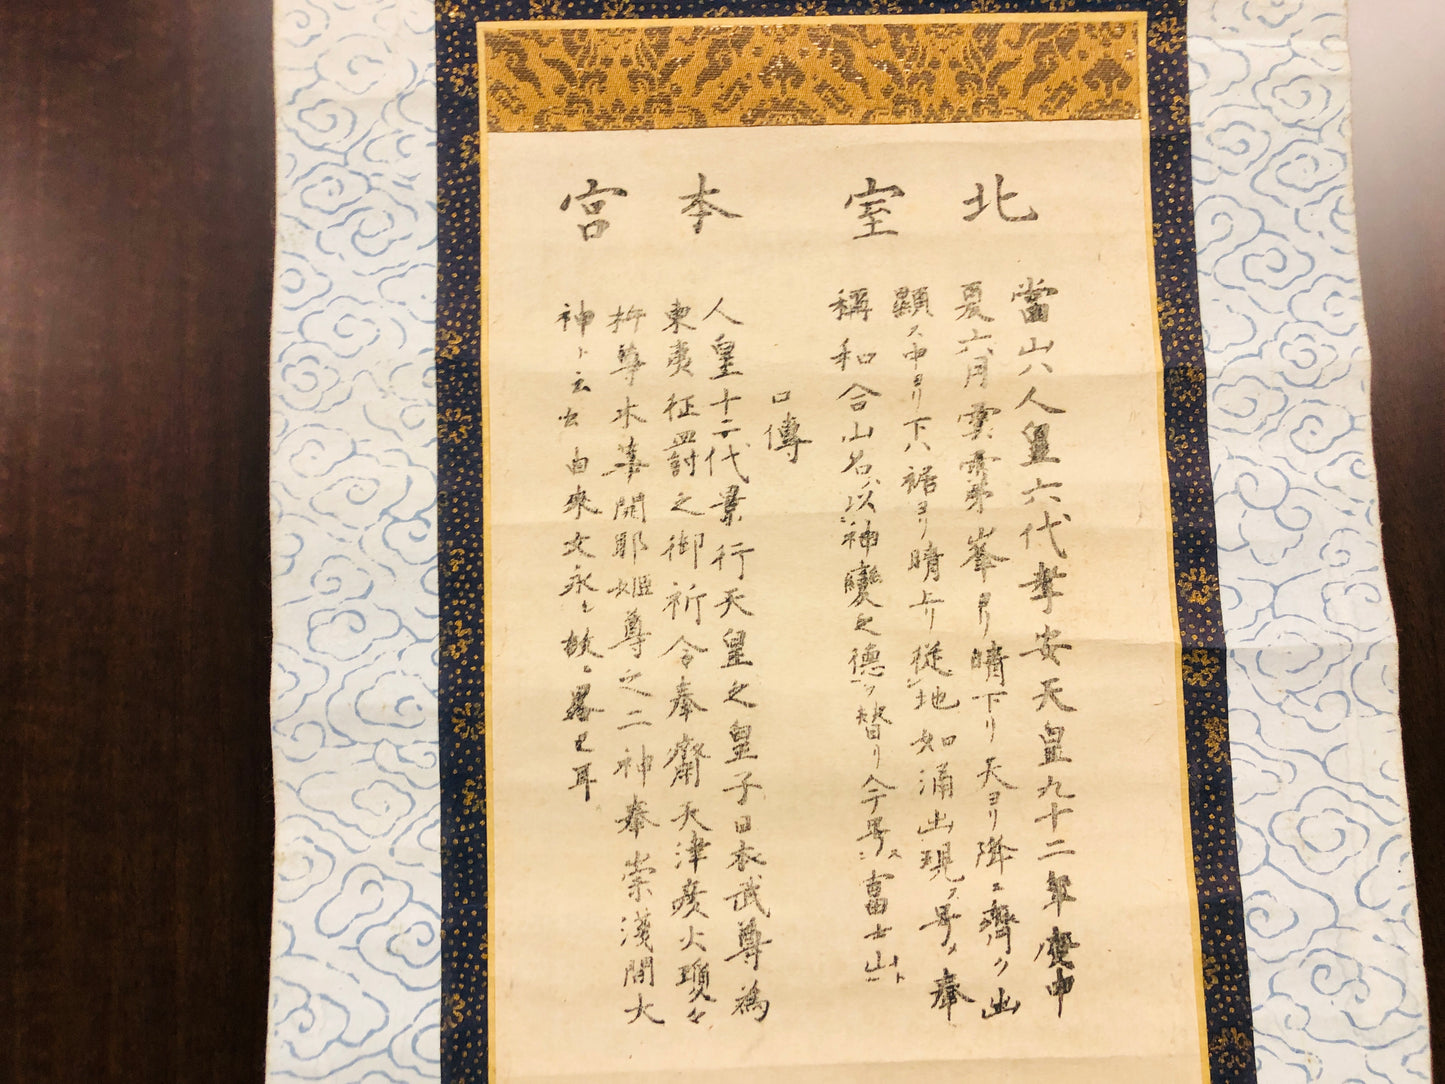 北室本宮
當山八人皇六代孝安天皇九十二年庚申
夏六月雲霧峯ヨリ晴下リ天ヨリ降ニ齊ク出
顕ス中ヨリ下ハ裾ヨリ晴上リ從地如涌出現ス号メ奉
稱和合山名以神變之德ヲ替リ今号ス富士山ト
口傳
人皇十二代景行天皇之皇子日本武尊為
東夷征罸之御祈令奉齋天津彦火瓊々
杵尊木華開耶姫尊之二神奉崇淺間大
神ト云云由來文永ヽ故ヽ畧已耳